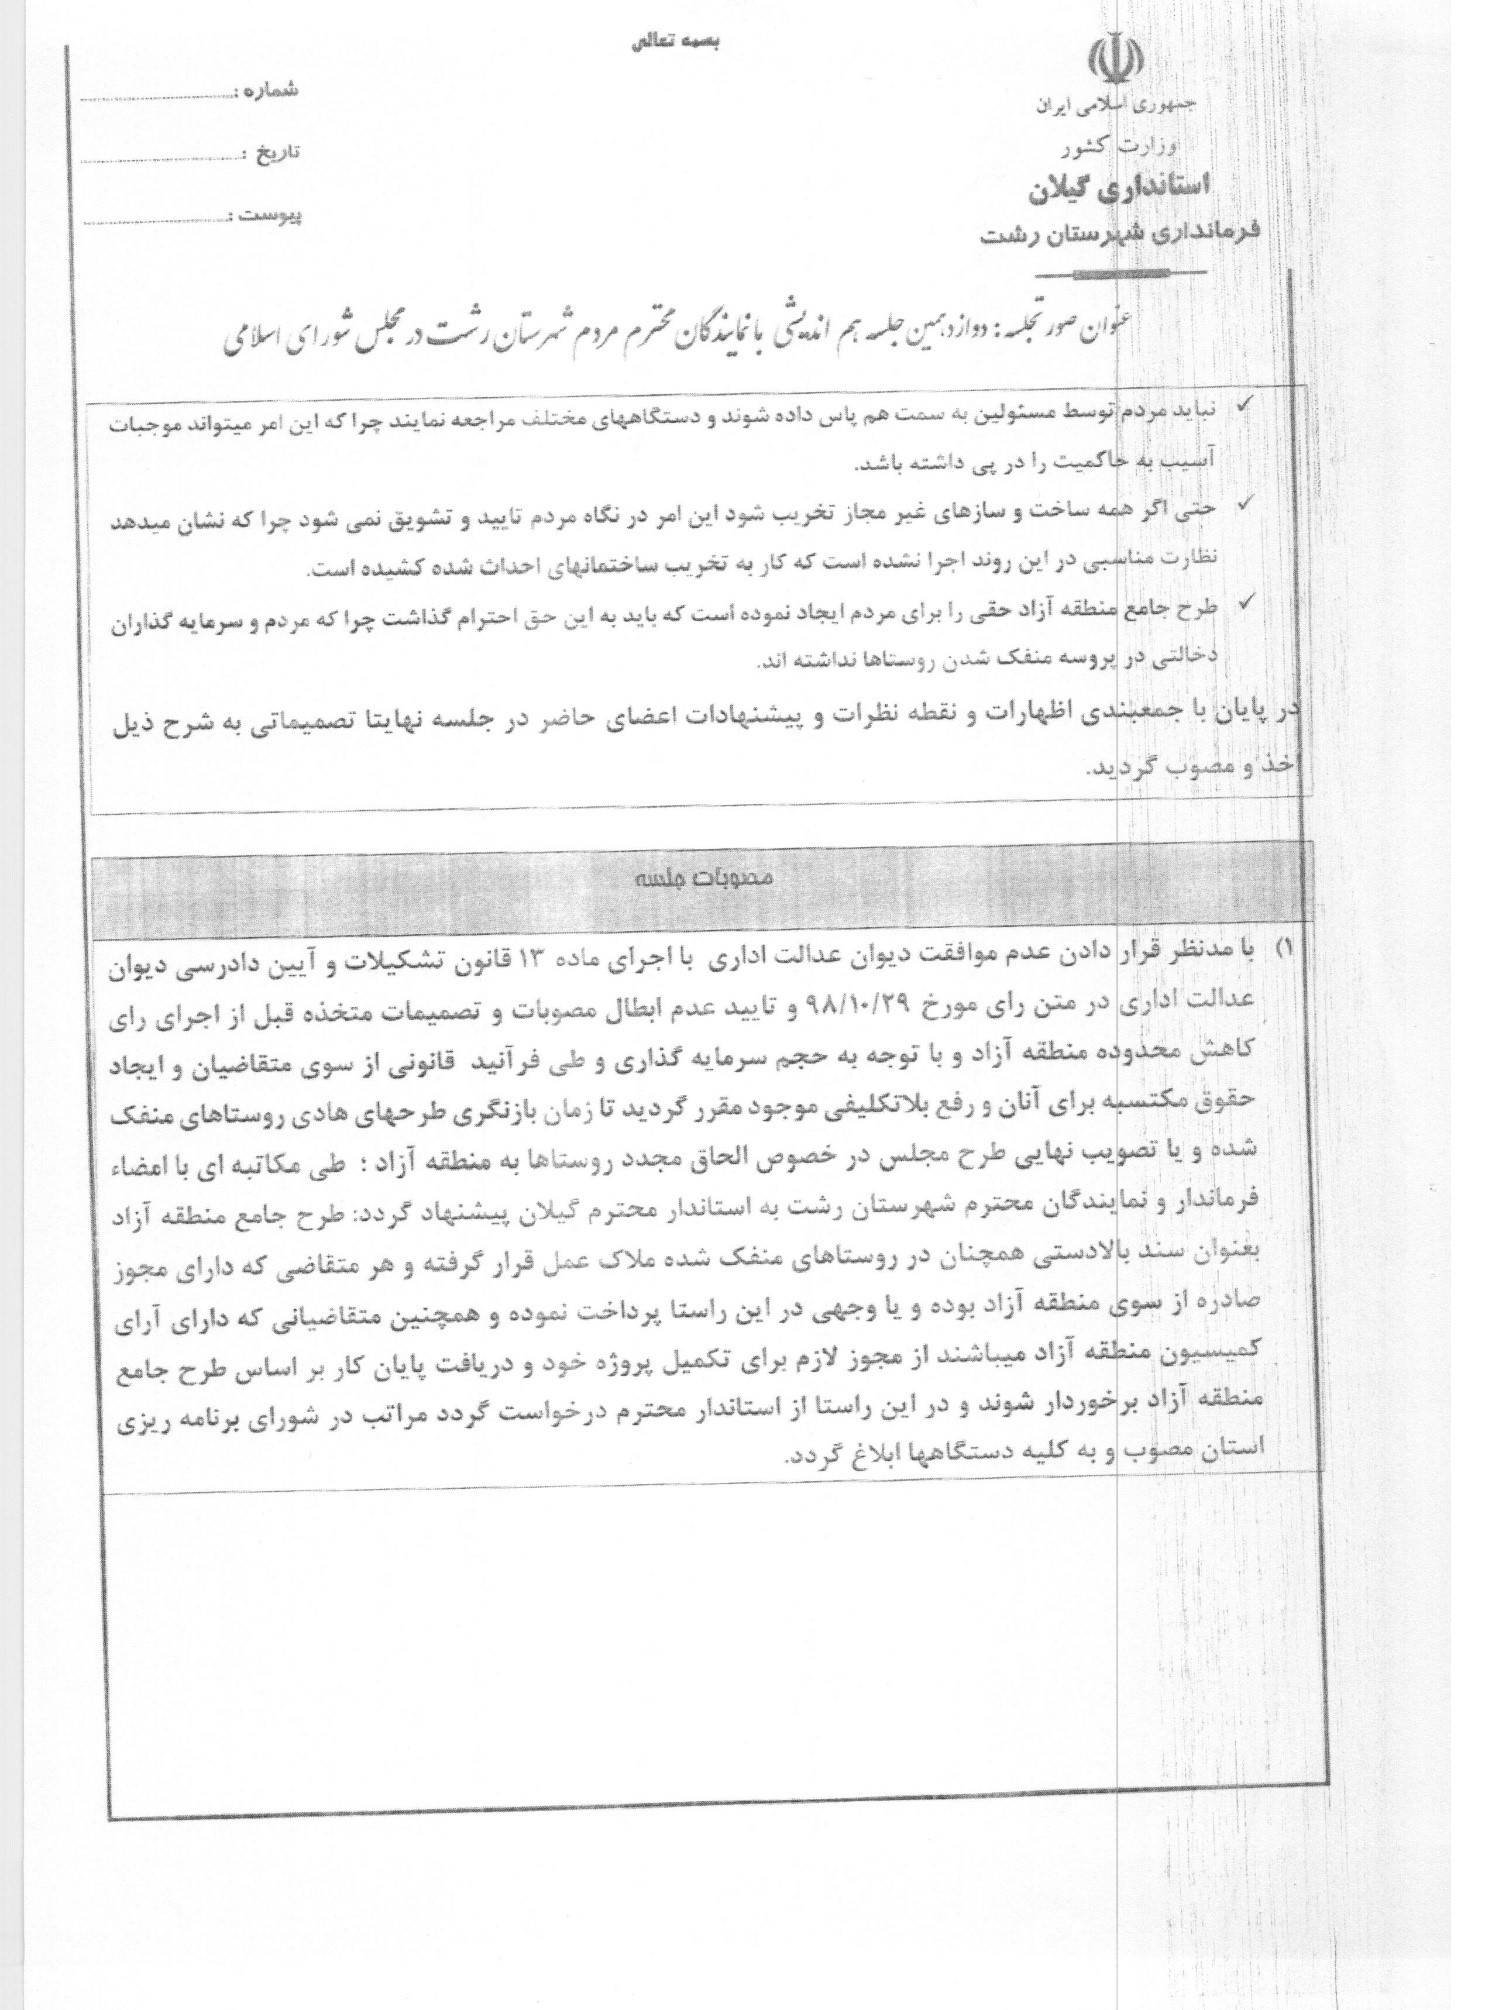 بسمه تعالی
جمهوری اسلامی ایران
وزارت کشور
استانداری گیلان
فرمانداری شهرستان رشت
شماره :
تاریخ :
پیوست :
عنوان صورتجلسه : دوازدهمین جلسه هم اندیشی با نمایندگان محترم مردم شهرستان رشت در مجلس شورای اسلامی
✓ نباید مردم توسط مسئولین به سمت هم پاس داده شوند و دستگاههای مختلف مراجعه نمایند چرا که این امر میتواند موجبات
آسیب به حاکمیت را در پی داشته باشد.
✓ حتی اگر همه ساخت و سازهای غیر مجاز تخریب شود این امر در نگاه مردم تایید و تشویق نمی شود چرا که نشان میدهد
نظارت مناسبی در این روند اجرا نشده است که کار به تخریب ساختمانهای احداث شده کشیده است.
✓ طرح جامع منطقه آزاد حقی را برای مردم ایجاد نموده است که باید به این حق احترام گذاشت چرا که مردم و سرمایه گذاران
دخالتی در پروسه منفک شدن روستاها نداشته اند.
در پایان با جمعبندی اظهارات و نقطه نظرات و پیشنهادات اعضای حاضر در جلسه نهایتا تصمیماتی به شرح ذیل
اخذ و مصوب گردید.
مصوبات جلسه
۱) با مدنظر قرار دادن عدم موافقت دیوان عدالت اداری با اجرای ماده ۱۳ قانون تشکیلات و آیین دادرسی دیوان
عدالت اداری در متن رای مورخ ۹۸/۱۰/۲۹ و تایید عدم ابطال مصوبات و تصمیمات متخذه قبل از اجرای رای
کاهش محدوده منطقه آزاد و با توجه به حجم سرمایه گذاری و طی فرآنید قانونی از سوی متقاضیان و ایجاد
حقوق مکتسبه برای آنان و رفع بلاتکلیفی موجود مقرر گردید تا زمان بازنگری طرحهای هادی روستاهای منفک
شده و یا تصویب نهایی طرح مجلس در خصوص الحاق مجدد روستاها به منطقه آزاد ؛ طی مکاتبه ای با امضاء
فرماندار و نمایندگان محترم شهرستان رشت به استاندار محترم گیلان پیشنهاد گردد: طرح جامع منطقه آزاد
بعنوان سند بالادستی همچنان در روستاهای منفک شده ملاک عمل قرار گرفته و هر متقاضی که دارای مجوز
صادره از سوی منطقه آزاد بوده و یا وجهی در این راستا پرداخت نموده و همچنین متقاضیانی که دارای آرای
کمیسیون منطقه آزاد میباشند از مجوز لازم برای تکمیل پروژه خود و دریافت پایان کار بر اساس طرح جامع
منطقه آزاد برخوردار شوند و در این راستا از استاندار محترم درخواست گردد مراتب در شورای برنامه ریزی
استان مصوب و به کلیه دستگاهها ابلاغ گردد.